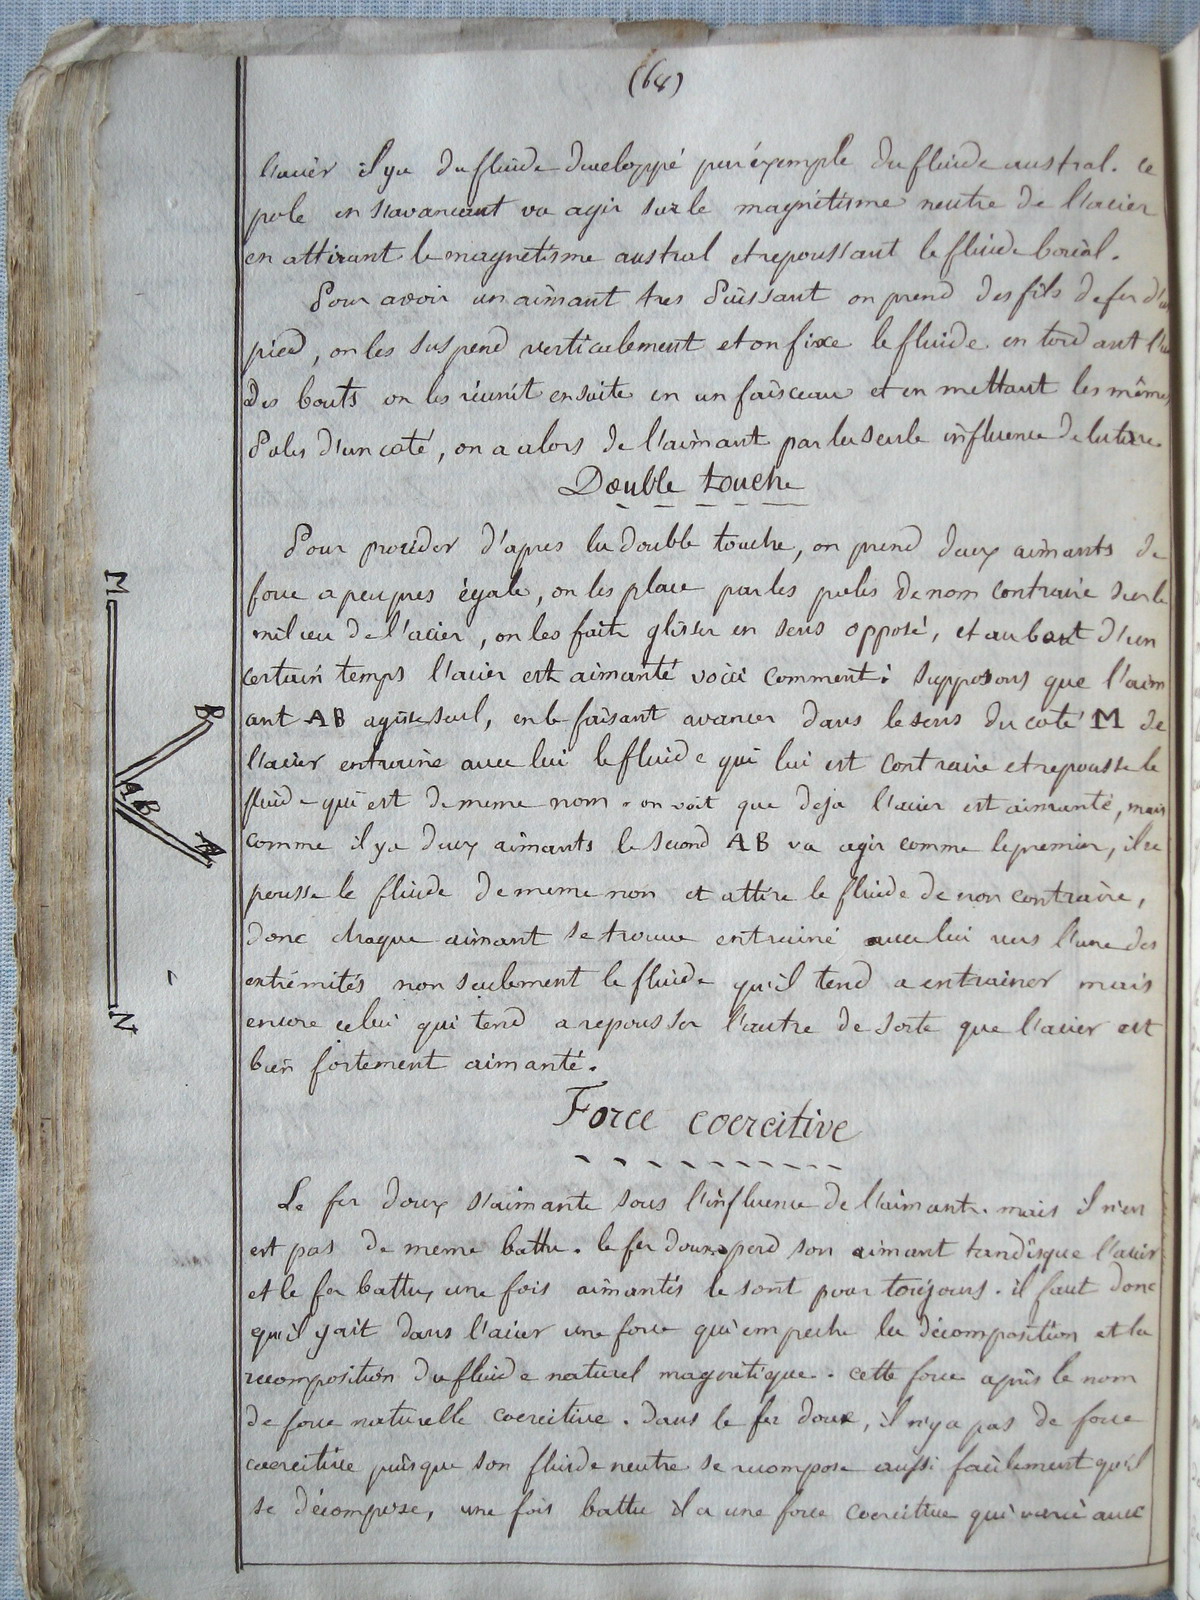 (64)
l'acier il y a du fluide developpé par éxemple du fluide austral. ce
pole en s'avancant va agir sur le magnétisme neutre de l'acier
en attirant le magnétisme austral et repoussant le fluide boréal.
Pour avoir un aimant tres Puissant on prend des fils de fer d'un
pied, on les suspend verticalement et on fixe le fluide en tordant l'un
des bouts on les réunit ensuite en un faisceau et en mettant les mêmes
Poles d'un coté, on a alors de l'aimant par la seule influence de la terre.
Double touche
Pour procéder d'apres la double touche, on prend deux aimants de
force a peu pres égale, on les place par les poles de nom contraire sur le
milieu de l'acier, on les fait glisser en sens opposé, et au bout d'un
certain temps l'acier est aimanté voici comment: supposons que l'aim
ant AB agisse seul, en le faisant avancer dans le sens du coté M de
l'acier entraine avec lui le fluide qui lui est contraire et repousse le
fluide qui est de meme nom. on voit que deja l'acier est aimanté, mais
comme il y a deux aimants le second AB va agir comme le premier, il re
pousse le fluide de meme non et attire le fluide de non contraire,
donc chaque aimant se trouve entrainé avec lui vers l'une des
extrémités non seulement le fluide qu'il tend a entrainer mais
encore celui qui tend a repousser l'autre de sorte que l'acier est
bien fortement aimanté.
Force coercitive
Le fer doux s'aimante sous l'influence de l'aimant. mais il n'en
est pas de meme battu. le fer doux perd son aimant tandisque l'acier
et le fer battu, une fois aimantés le sont pour toujours. il faut donc
qu'il y ait dans l'acier une force qui empeche la décomposition et la
recomposition du fluide naturel magnétique. cette force a pris le nom
de force naturelle coercitive. dans le fer doux, il n'y a pas de force
coercitive puisque son fluide neutre se recompose aussi facilement qu'il
se décompose, une fois battu il a une force coercitive qui varie avec
M
B
A B
A
N